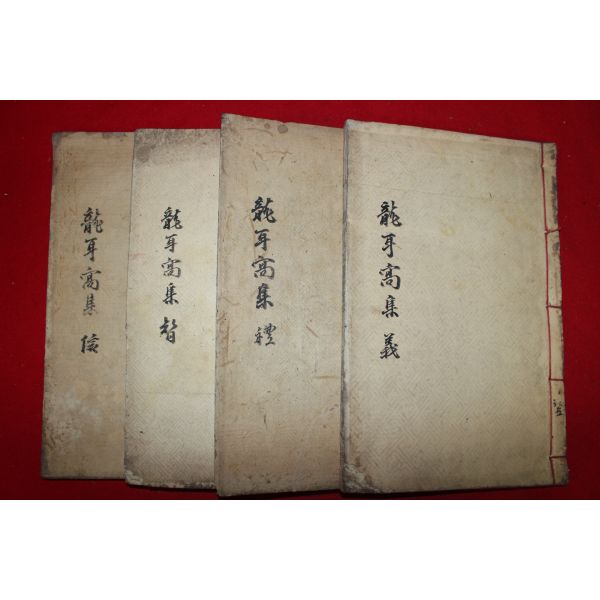 龍耳窩集 義
龍耳窩集 禮
龍耳窩集 智
龍耳窩集 信